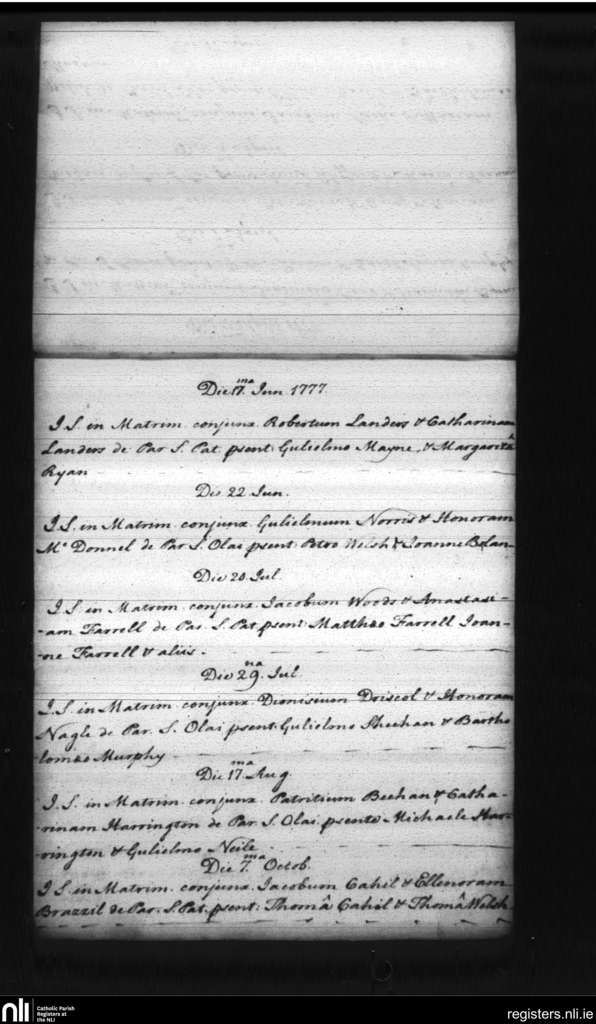 Die 17.ma Jun 1777.
I.S. in Matrim. conjunx. Robertum Landers & Catharinam
Landers de Par S. Pat. psent. Gulielmo Mayne, & Margaritâ
Ryan
Die 22 Jun.
I.S. in Matrim. conjunx. Gulielmum Norris & Honoram
Mc Donnel de Par S. Olai psent. Petro Welsh & Joanne
Die 20. Jul.
I.S. in Matrim. conjunx. Jacobum Woods & Anastasi-
-am Farrell de Par. S. Pat. psent. Matthæo Farrell Joan-
-ne Farrell & aliis.
Die 29.na Jul.
I.S. in Matrim. conjunx. Dionisium Driscol & Honoram
Nagle de Par. S. Olai psent. Gulielmo Sheehan & Bartho
lomæo Murphy
Die 17.ma Aug.
I.S. in Matrim. conjunx. Patritium Beehan & Catha-
-rinam Harrington de Par S. Olai psente Michaele Har-
-rington & Gulielmo Neile.
Die 7.ma Octob.
I.S. in Matrim. conjunx. Jacobum Cahil & Ellenoram
Brazzil de Par. S. Pat. psent. Thomâ Cahil & Thomâ Welsh
nli Catholic Parish
Registers at
the NLI
registers.nli.ie